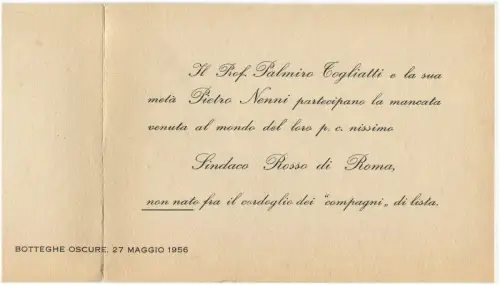 Il Prof. Palmiro Togliatti e la sua
metà Pietro Nenni partecipano la mancata
venuta al mondo del loro p. c. nissimo
Sindaco Rosso di Roma,
non nato fra il cordoglio dei "compagni" di lista.
BOTTEGHE OSCURE, 27 MAGGIO 1956